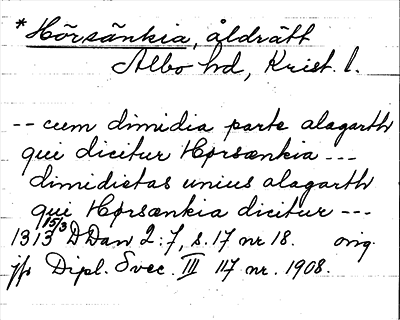 *Hörsänkia, åldrätt
Albo hd, Krist. l.
-- cum dimidia parte alagarth
qui dicitur Hørsænkia ---
dimidietas unius alagarth
qui Hørsænkia dicitur ---
1313 15/3 DDan 2:7, s. 17 nr 18. orig.
jfr Dipl. Svec. III 117 nr. 1908.